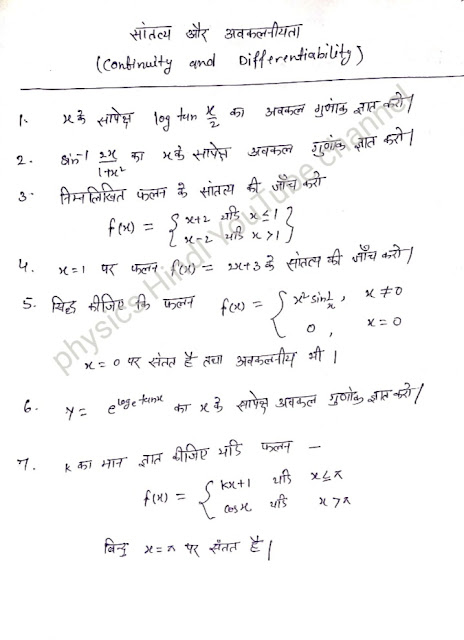 सांतत्य और अवकलनीयता
(Continuity and Differentiability)
1. x के सापेक्ष log tan x/2 का अवकल गुणांक ज्ञात करो।
2. sin⁻¹ 2x/1+x² का x के सापेक्ष अवकल गुणांक ज्ञात करो।
3. निम्नलिखित फलन के सांतत्य की जाँच करो
f(x) = { x+2 यदि x ≤ 1
x-2 यदि x > 1 }
4. x=1 पर फलन f(x) = 2x+3 के सांतत्य की जाँच करो।
5. सिद्ध कीजिए कि फलन f(x) = { x² sin 1/x, x ≠ 0
0, x = 0
x = 0 पर संतत है तथा अवकलनीय भी।
6. y = e^logₑ tanx का x के सापेक्ष अवकल गुणांक ज्ञात करो।
7. k का मान ज्ञात कीजिए यदि फलन —
f(x) = { kx+1 यदि x ≤ π
cosx यदि x > π
बिन्दु x = π पर संतत है।
physics Hindi YouTube channel